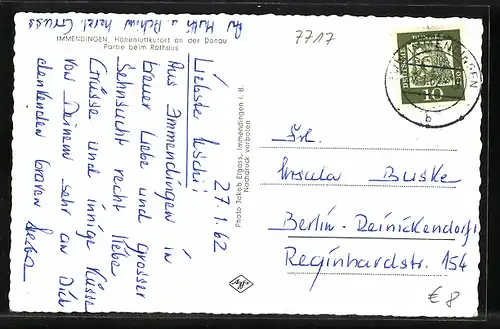 An Mutti u. Achim herzl. Gruss
IMMENDINGEN, Höhenluftkurort an der Donau
Partie beim Rathaus
7717
27.1.62
Liebste Uschi!
Aus Immendingen in
treuer Liebe und grosser
Sehnsucht recht liebe
Grüsse und innige Küsse
von Deinem sehr an Dich
denkenden braven
Photo Jakob Efgass, Immendingen i. B.
Nachdruck verboten
10
b
Frl.
Ursula Buske
Berlin-Reinickendorf 1
Reginhardstr. 154
€ 8